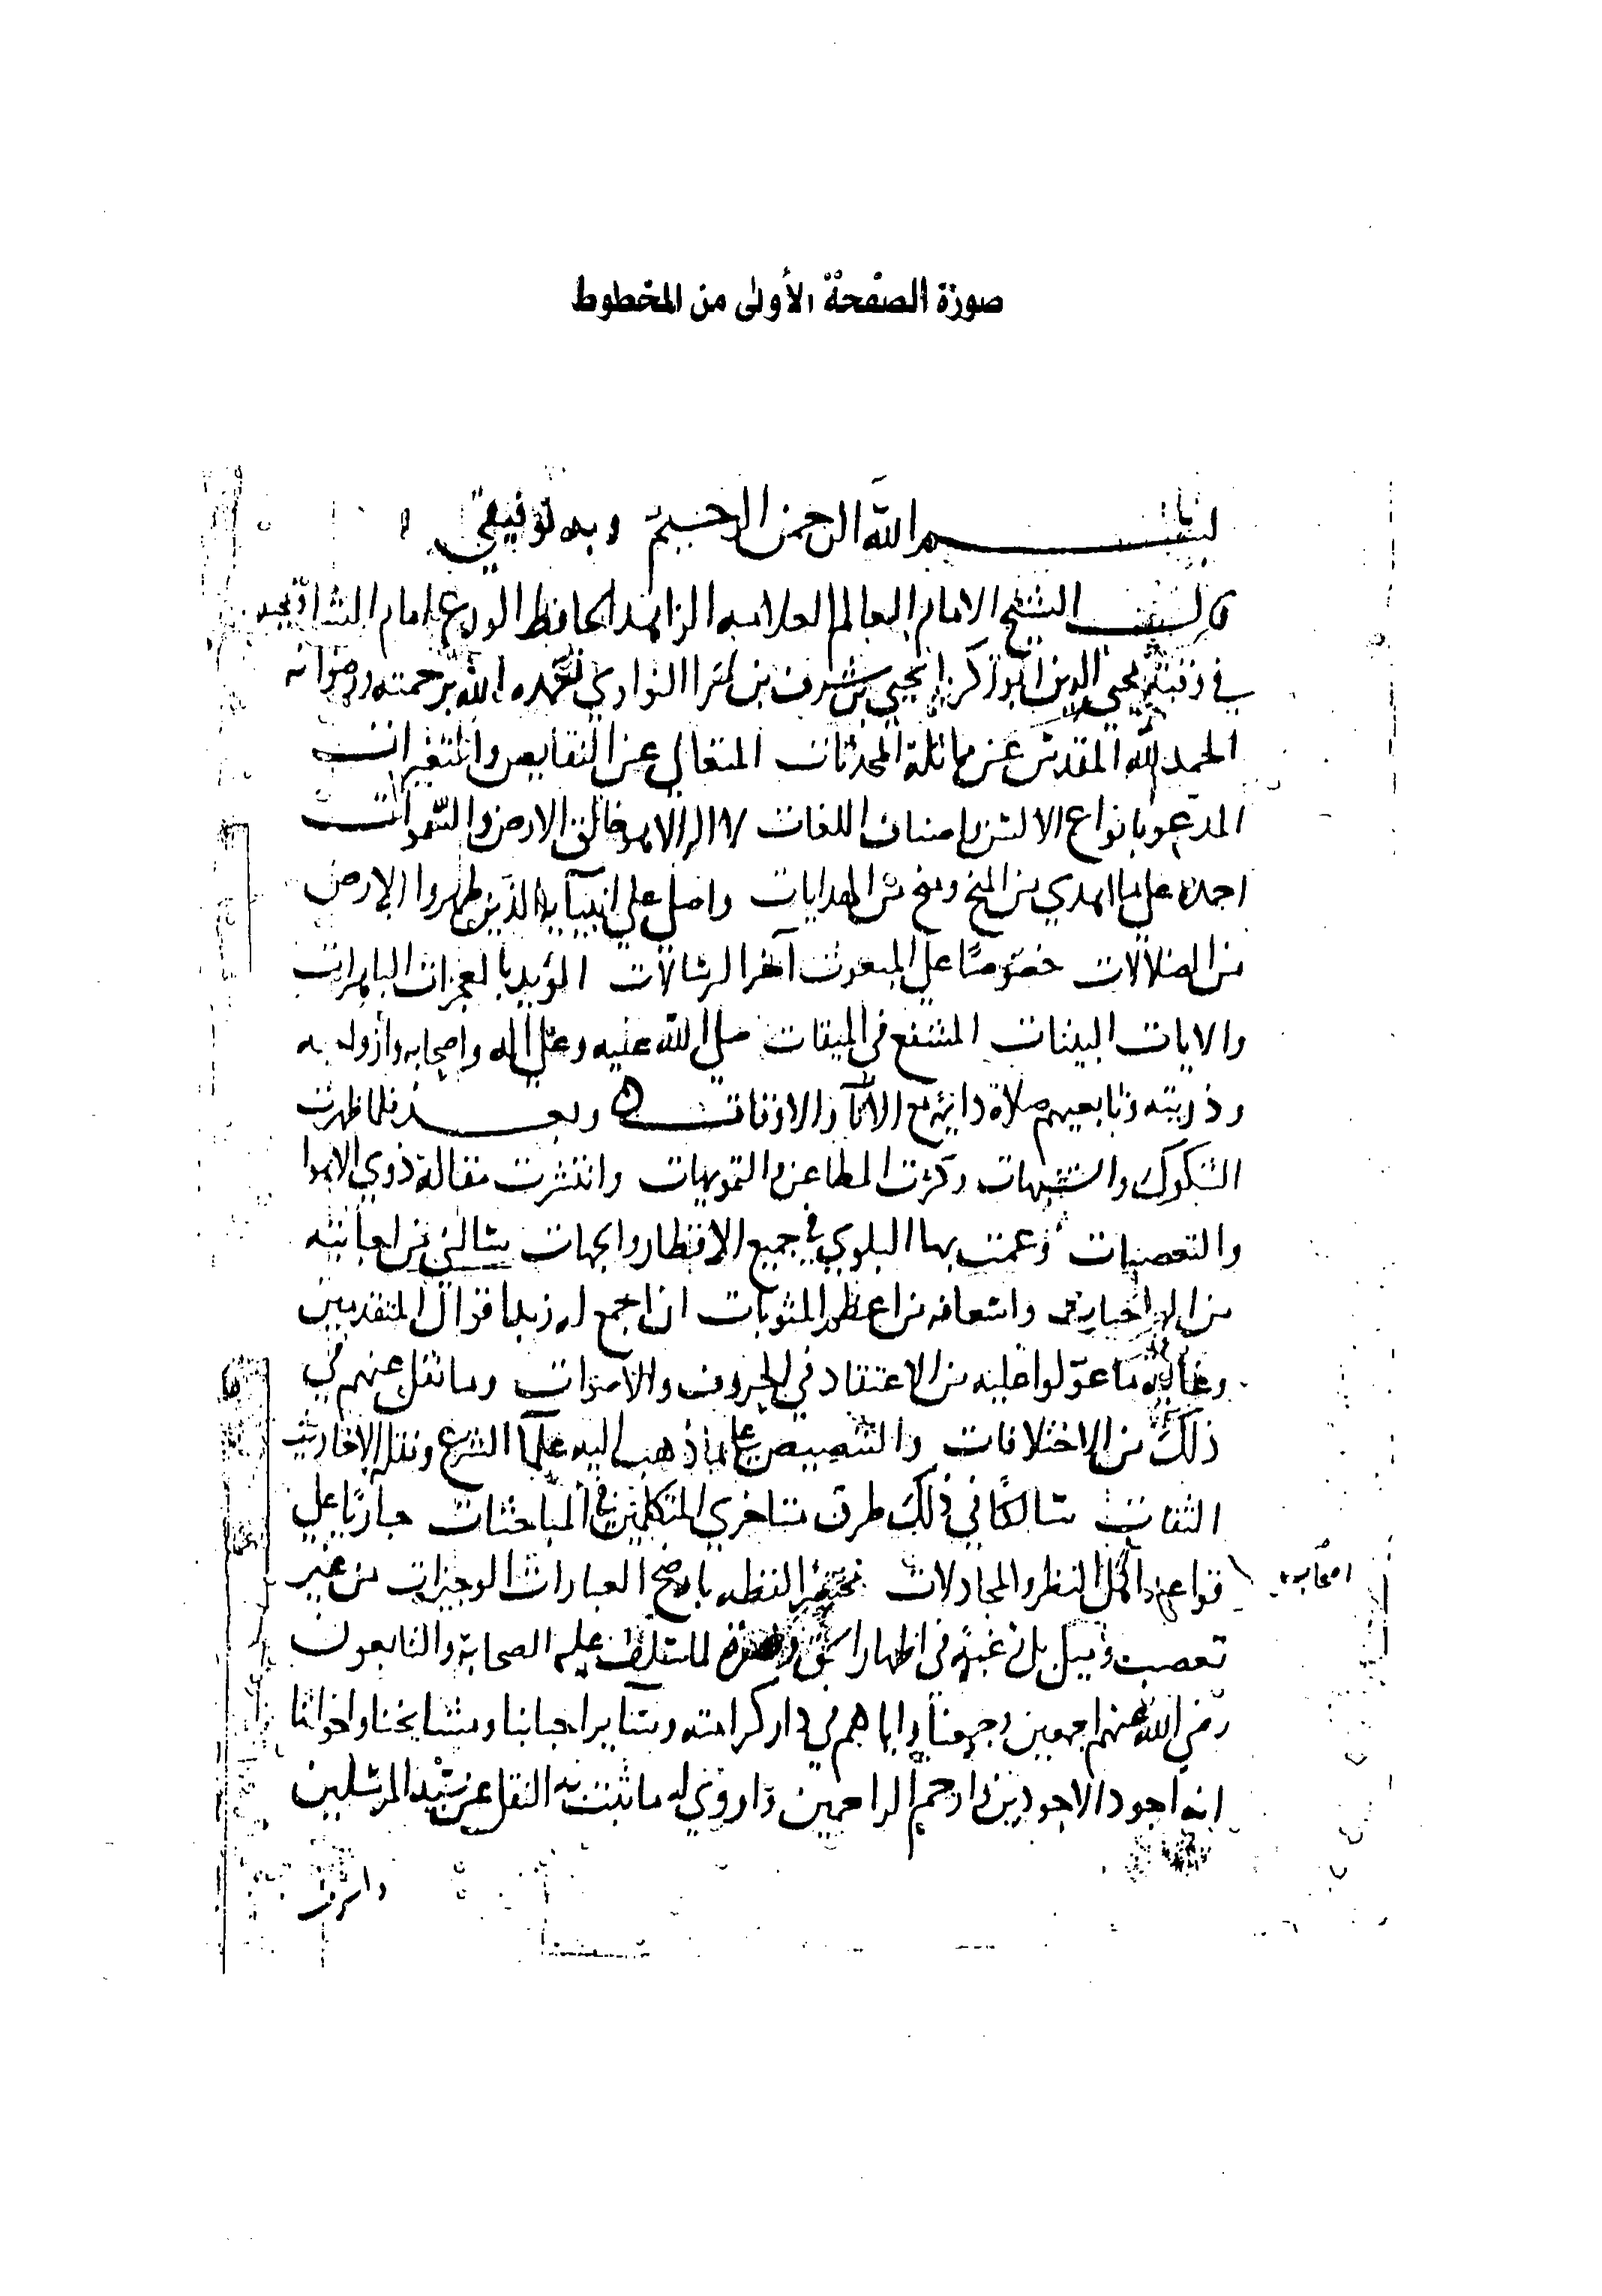 صورة الصفحة الأولى من المخطوط
بسم الله الرحمن الرحيم وبه توفيقي
قال الشيخ الامام العالم العلامه الزاهد الحافظ الورع امام الشافعيه
في وقته محيي الدين ابو زكريا يحيي بن شرف بن مرا النواوي تغمده الله برحمته ورضوانه
الحمد لله المقدس عن مماثلة المحدثات المتعالي عن النقايص والتغيرات
المدعو بانواع الالسن باصناف اللغات لا اله الا هو خالق الارض والسموات
احمده على ما اهدي من المنح ومنح من الهدايات واصلي على انبيآيه الذين طهروا الارض
من الضلالات خصوصًا على المبعوث آخر الرسالات المؤيد بالمعجزات الباهرات
والايات البينات المشفع في الميقات صلى الله عليه وعلى آله واصحابه وأزواجه
وذريته وتابعيهم صلاة دايمة مع الانآ والاوقات ه وبعد فلما ظهرت
الشكوك والشبهات وكثرت المطاعن والتمويهات وانتشرت مقالة ذوي الاهوا
والتعصبات وعمت بها البلوي في جميع الاقطار والجهات سالني من اجابته
من واسعافه من اعظم المثوبات ان اجمع له زبد اقوال المتقدمين
وغاية ما عوّلوا عليه من الاعتقاد في الحروف والاصوات وما نقل عنهم في
ذلك من الاختلافات والتنصيص على ما ذهب اليه علمآ الشرع ونقلة الاحاديث
الثقات سالكًا في ذلك طرق متاخري المتكلمين في المباحثات جاريًا علي
قواعد اهل النظر والمجادلات مختصر اللفظه باوضح العبارات الوجيزات من غير
اصحابه
تعصب وميل بل رغبةً في اظهار الحق ونصرة لما سلف عليه الصحابة والتابعون
رضي الله عنهم اجمعين وجمعنا واياهم في دار كرامته وسآير احبابنا ومشايخنا واخواننا
انه اجود الاجودين وارحم الراحمين واروي له ما ثبت به النقل عن سيد المرسلين